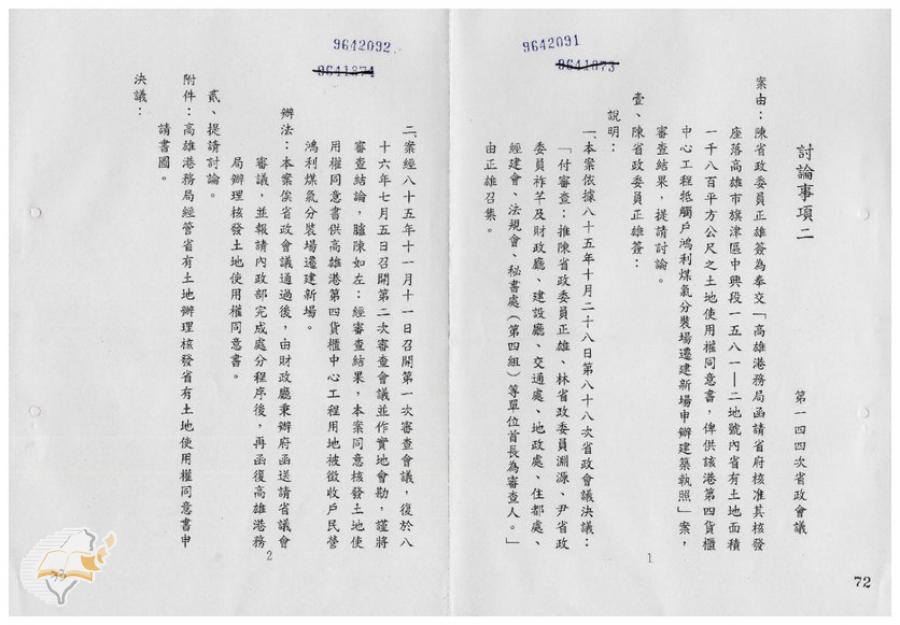 9642091
9641873
討論事項二
第一四四次省政會議
案由：陳省政委員正雄簽為奉交「高雄港務局函請省府核准其核發
座落高雄市旗津區中興段一五八一—二地號內省有土地面積
一千八百平方公尺之土地使用權同意書，俾供該港第四貨櫃
中心工程牴觸戶鴻利煤氣分裝場遷建新場申辦建築執照」案，
審查結果，提請討論。
壹、陳省政委員正雄簽：
說明：
一、本案依據八十五年十月二十八日第八十八次省政會議決議：
「付審查：推陳省政委員正雄、林省政委員淵源、尹省政
委員祚芊及財政廳、建設廳、交通處、地政處、住都處、
經建會、法規會、秘書處（第四組）等單位首長為審查人。」
由正雄召集。
1
72
9642092
9641874
二、案經八十五年十一月十一日召開第一次審查會議，復於八
十六年七月五日召開第二次審查會議並作實地會勘，謹將
審查結論，臚陳如左：經審查結果，本案同意核發土地使
用權同意書供高雄港第四貨櫃中心工程用地被徵收戶民營
鴻利煤氣分裝場遷建新場。
辦法：本案俟省政會議通過後，由財政廳秉辦府函送請省議會
審議，並報請內政部完成處分程序後，再函復高雄港務
局辦理核發土地使用權同意書。
貳、提請討論。
附件：高雄港務局經管省有土地辦理核發省有土地使用權同意書申
請書圖。
決議：
2